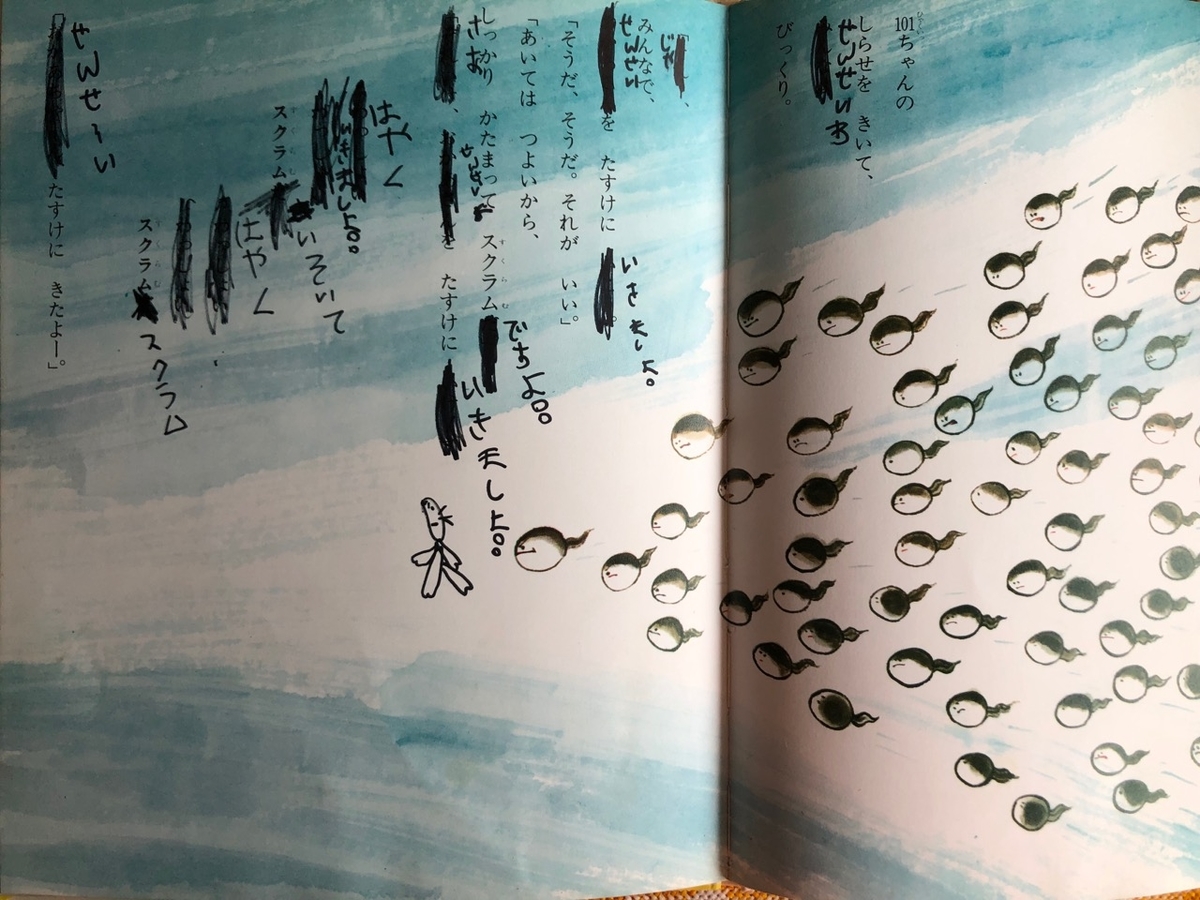 101ちゃんの
しらせを きいて、
せんせいわ
びっくり。
じゃ、
みんなで、
せんせいを たすけに いきましよ。
「そうだ、そうだ。それが いい。」
「あいては つよいから、
しっかり かたまって スクラム でちよ。
さあ、せんせいを たすけに いきましよ。
はやく
いきましよ。
スクラム いそいて
はやく
スクラム スクラム
たすけに きたよー。」